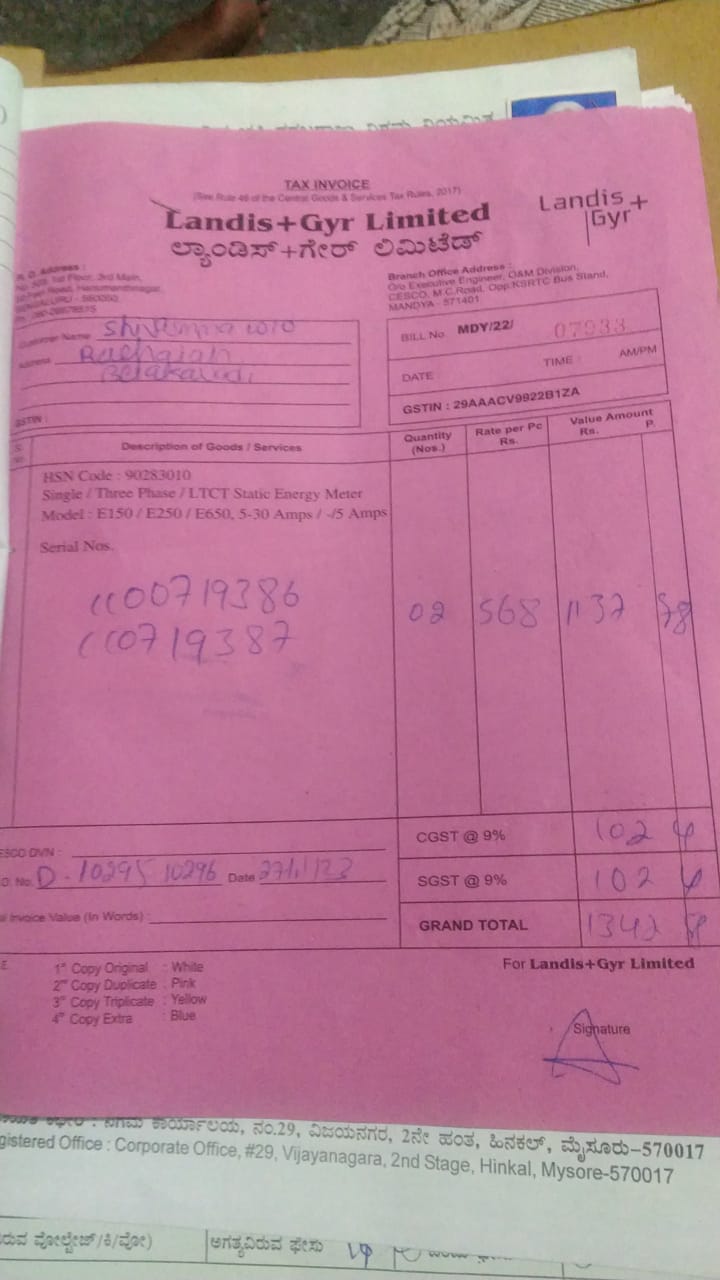 TAX INVOICE
(See Rule 46 of the Central Goods & Services Tax Rules, 2017)
Landis+Gyr Limited
ಲ್ಯಾಂಡಿಸ್+ಗೇರ್ ಲಿಮಿಟೆಡ್
Landis+
Gyr
R. O. Address :
1st Floor, 3rd Main,
Branch Office Address :
O/o Executive Engineer, O&M Division,
CESCO, M.C.Road, Opp.KSRTC Bus Stand,
MANDYA - 571401
Customer Name
Address
GSTIN :
BILL No. MDY/22/ 07933
DATE : TIME : AM/PM
GSTIN : 29AAACV9922B1ZA
Description of Goods / Services
Quantity (Nos.)
Rate per Pc Rs.
Value Amount Rs. P.
HSN Code : 90283010
Single / Three Phase / LTCT Static Energy Meter
Model : E150 / E250 / E650, 5-30 Amps / -/5 Amps
Serial Nos.
1100719386
110719387
02 568 1137 78
CGST @ 9% 102 4
ESCO DVN :
SGST @ 9% 102 4
D.O. No. D-10295 10296 Date
al Invoice Value (In Words) :
GRAND TOTAL 1342
1st Copy Original : White
2nd Copy Duplicate : Pink
3rd Copy Triplicate : Yellow
4th Copy Extra : Blue
For Landis+Gyr Limited
Signature
ನಿಗಮ ಕಾರ್ಯಾಲಯ, ನಂ.29, ವಿಜಯನಗರ, 2ನೇ ಹಂತ, ಹಿನಕಲ್, ಮೈಸೂರು-570017
gistered Office : Corporate Office, #29, Vijayanagara, 2nd Stage, Hinkal, Mysore-570017
ರುವ ವೋಲ್ಟೇಜ್/ಕಿ/ವೋ) ಅಗತ್ಯವಿರುವ ಫೇಸು